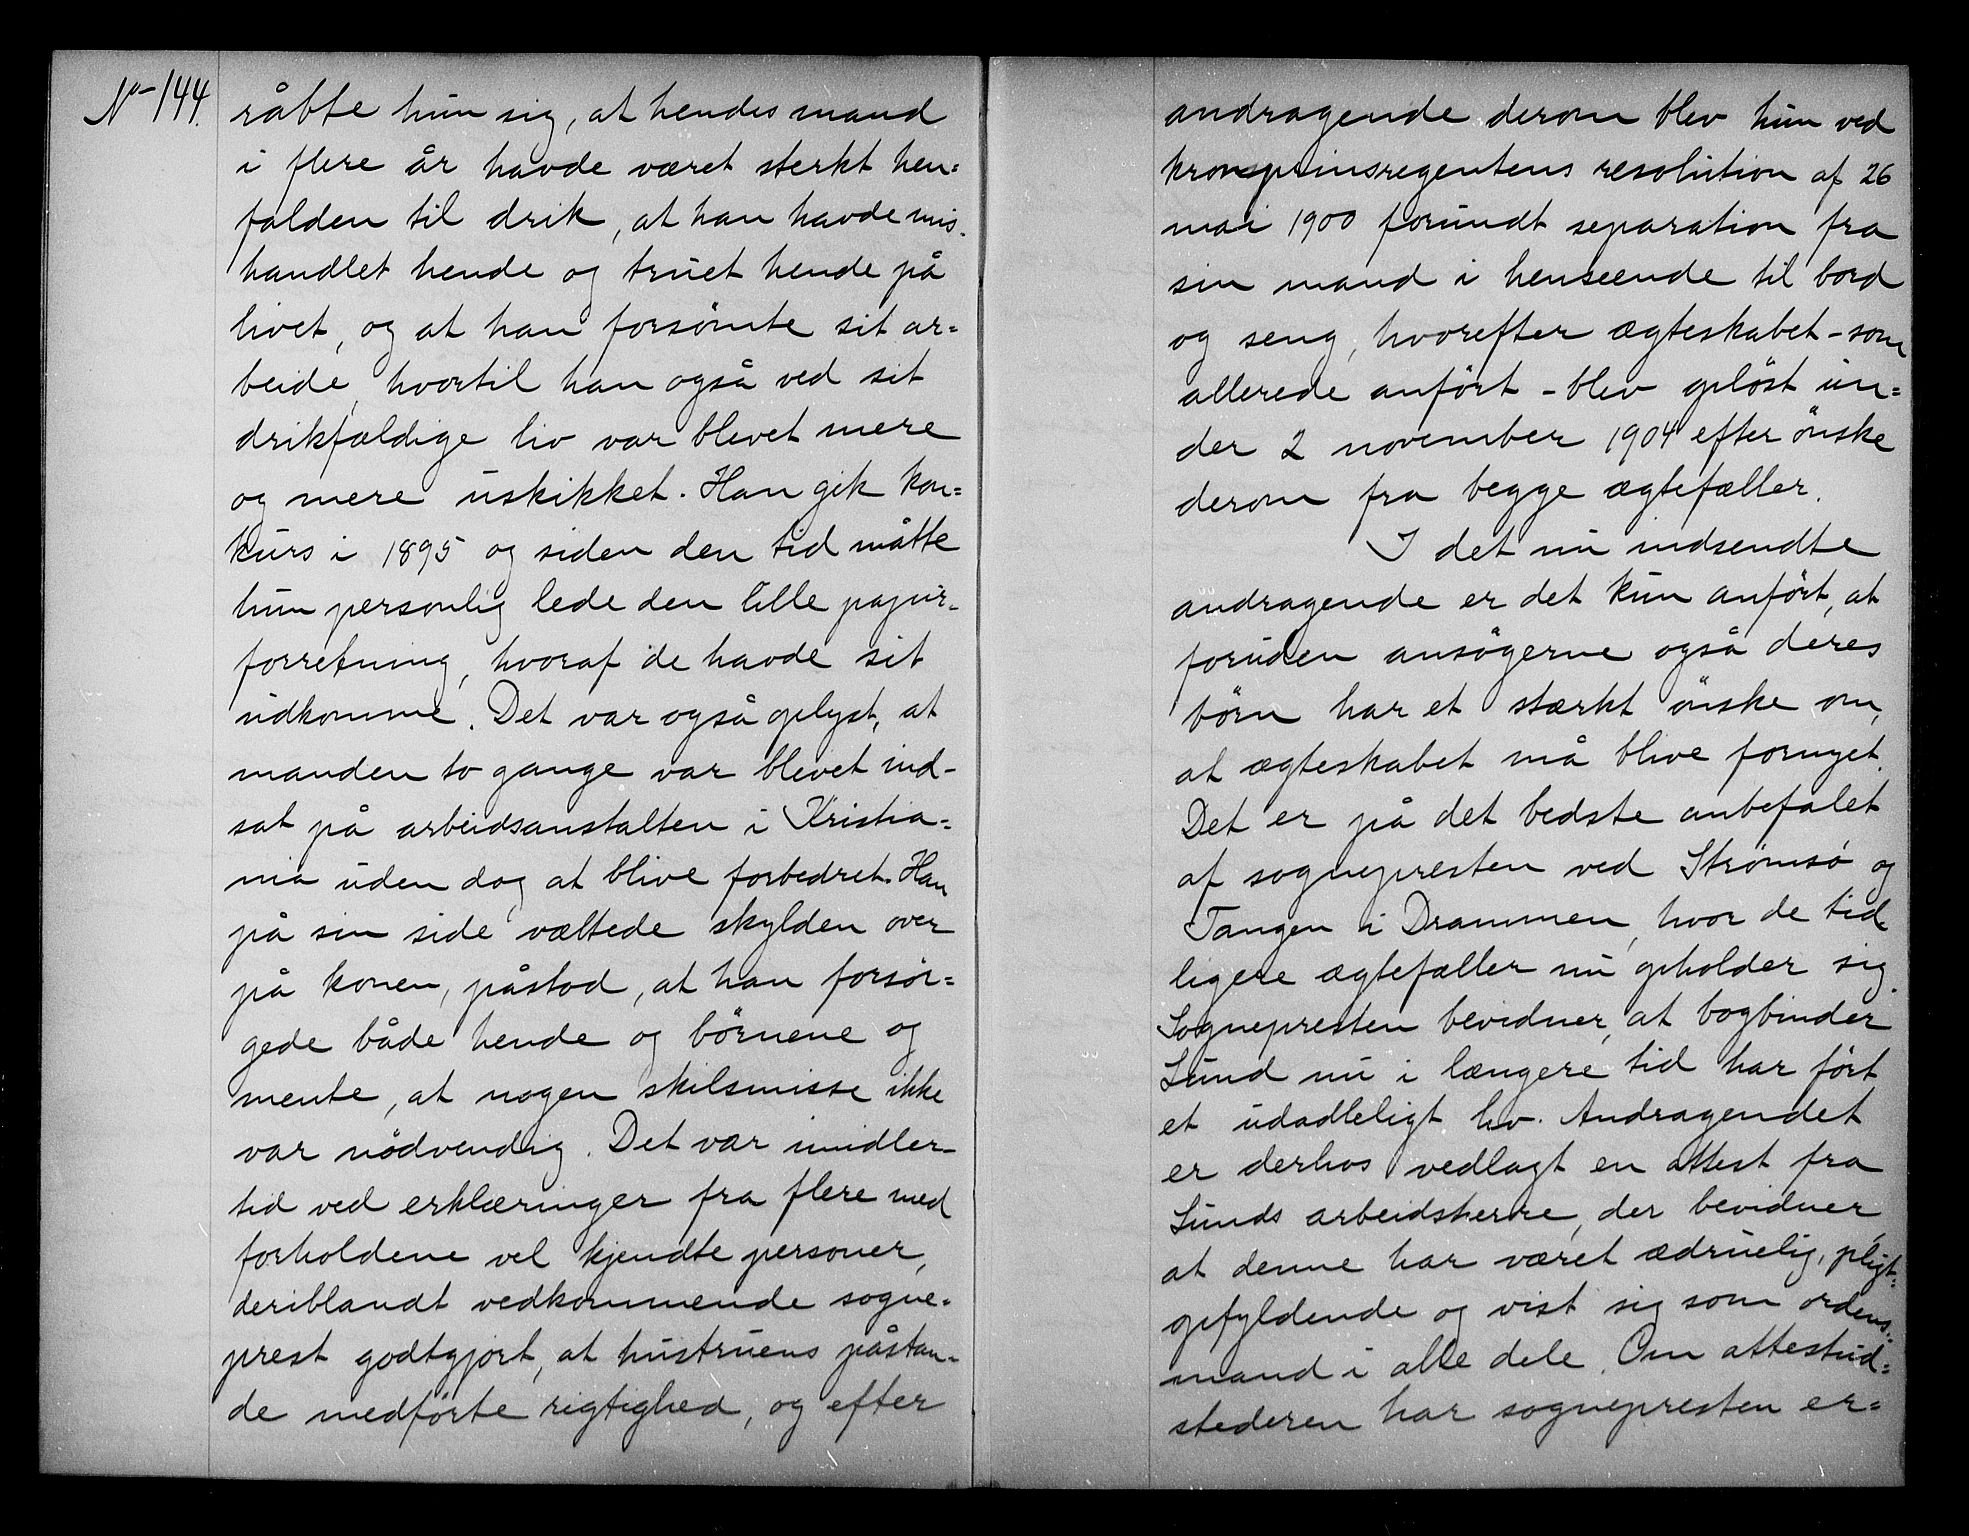 No 144.
råbte hun sig, at hendes mand
i flere år havde været sterkt hen=
falden til drik, at han havde mis-
handlet hende og truet hende på
livet, og at han forsømte sit ar=
beide, hvortil han også ved sit
drikfældige liv var blevet mere
og mere uskikket. Han gik kon=
kurs i 1895 og siden den tid måtte
hun personlig lede den lille papir-
forretning, hvoraf de havde sit
udkomme. Det var også oplyst, at
manden to gange var blevet ind-
sat på arbeidsanstalten i Kristia=
nia uden dog at blive forbedret. Han
på sin side væltede skylden over
på konen, påstod, at han forsør=
gede både hende og børnene og
mente, at nogen skilsmisse ikke
var nødvendig. Det var imidler-
tid ved erklæringer fra flere med
forholdene vel kjendte personer,
deriblandt vedkommende sogne-
prest godtgjort, at hustruens påstan-
de medførte rigtighed, og efter
andragende derom blev hun ved
kronprinsregentens resolution af 26
mai 1900 forundt separation fra
sin mand i henseende til bord
og seng, hvorefter ægteskabet - som
allerede anført - blev opløst un=
der 2 november 1904 efter ønske
derom fra begge ægtefæller.
I det nu indsendte
andragende er det kun anført, at
foruden ansøgerne også deres
børn har et stærkt ønske om,
at ægteskabet må blive fornyet.
Det er på det bedste anbefalet
af sognepresten ved Strømsø og
Tangen i Drammen, hvor de tid
ligere ægtefæller nu opholder sig.
Sognepresten bevidner, at bogbinder
Lund nu i længere tid har ført
et udadleligt liv. Andragendet
er derhos vedlagt en attest fra
Lunds arbeidsherre, der bevidner,
at denne har været ædruelig, pligt=
opfyldende og vist sig som ordens-
mand i alle dele. Om attestud=
stederen har sognepresten er=